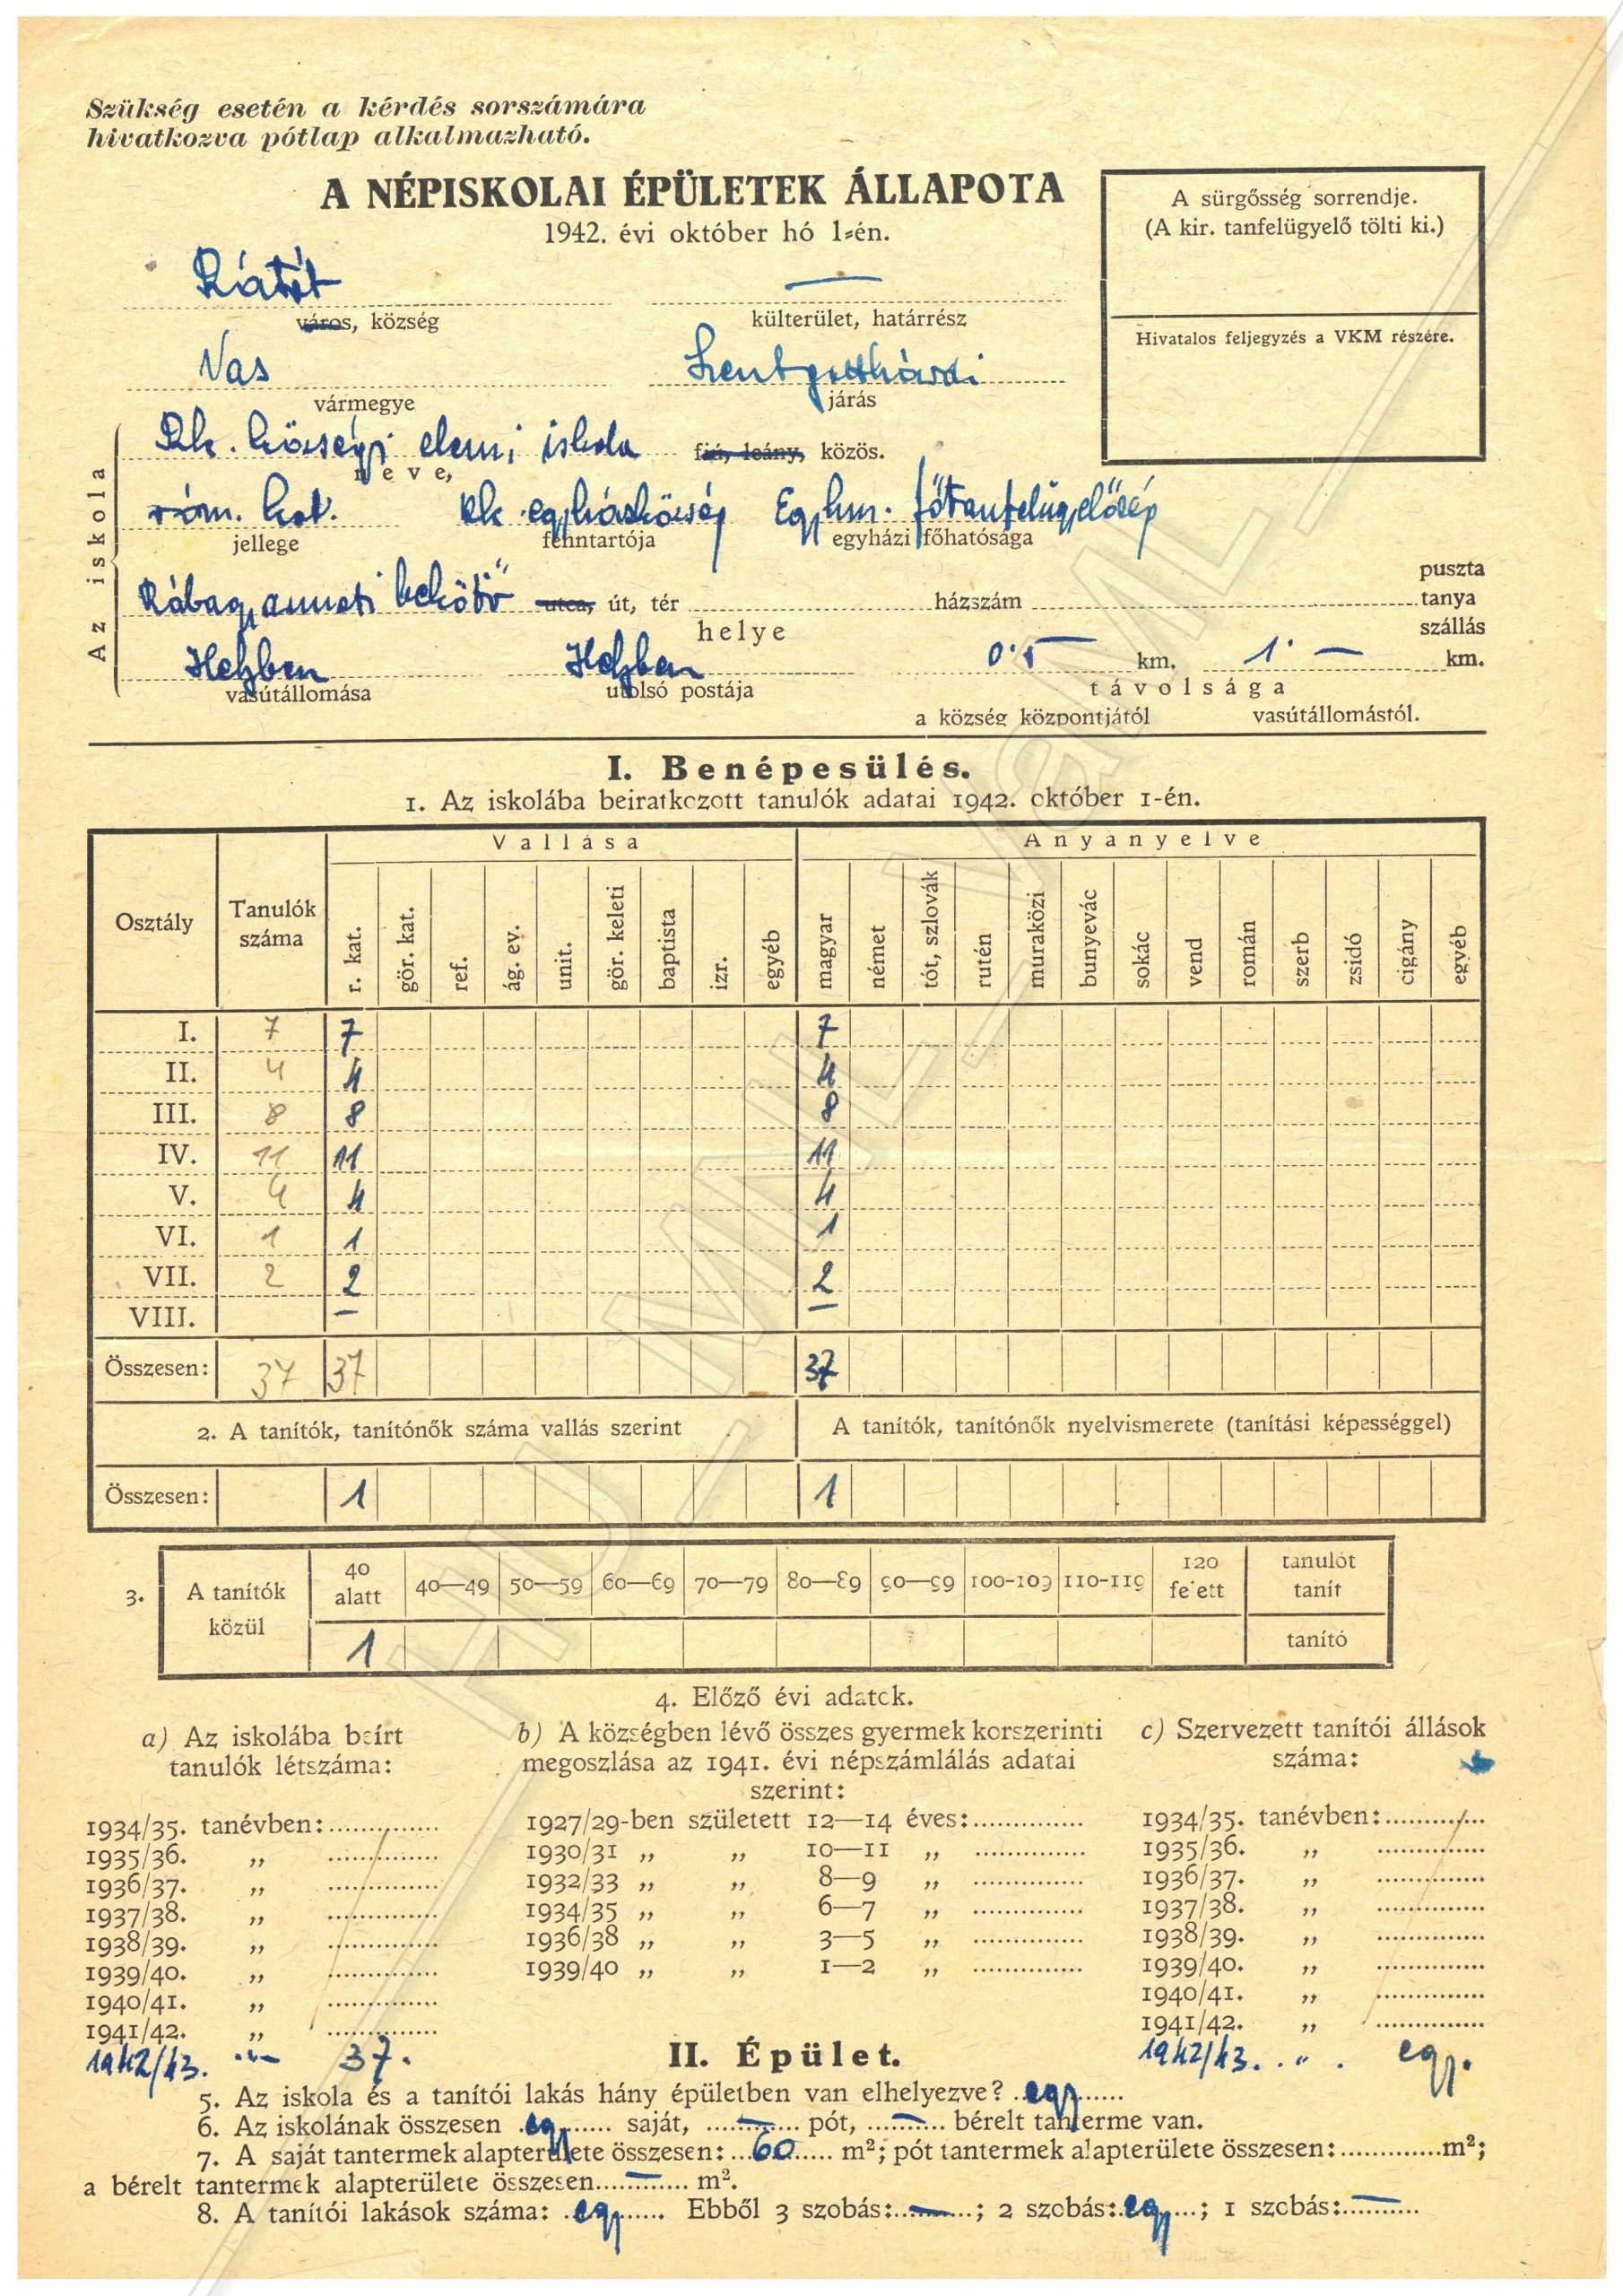 Szükség esetén a kérdés sorszámára
hivatkozva pótlap alkalmazható.
A NÉPISKOLAI ÉPÜLETEK ÁLLAPOTA
1942. évi október hó 1-én.
A sürgősség sorrendje.
(A kir. tanfelügyelő tölti ki.)
Hivatalos feljegyzés a VKM részére.
Rátót —
város, község külterület, határrész
Vas Szentgotthárdi
vármegye járás
Az iskola
Rk. községi elemi iskola fiú, leány, közös.
neve,
róm. kat. Rk. egyházközség Egyhm. főtanfelügyelőség
jellege fenntartója egyházi főhatósága
Rábagyarmati bekötő utca, út, tér házszám puszta
tanya
szállás
helye
Helyben Helyben 0.5 — km. 1. — km.
vasútállomása utolsó postája távolsága
a község központjától vasútállomástól.
I. Benépesülés.
1. Az iskolába beiratkozott tanulók adatai 1942. október 1-én.
Osztály Tanulók száma Vallása Anyanyelve
r. kat. gör. kat. ref. ág. ev. unit. gör. keleti baptista izr. egyéb magyar német tót, szlovák rutén muraközi bunyevác sokác vend román szerb zsidó cigány egyéb
I. 7 7 7
II. 4 4 4
III. 8 8 8
IV. 11 11 11
V. 4 4 4
VI. 1 1 1
VII. 2 2 2
VIII. — —
Összesen: 37 37 37
2. A tanítók, tanítónők száma vallás szerint A tanítók, tanítónők nyelvismerete (tanítási képességgel)
Összesen: 1 1
3. A tanítók közül 40 alatt 40—49 50—59 60—69 70—79 80—89 90—99 100-109 110-119 120 felett tanulót tanít
1 tanító
4. Előző évi adatok.
a) Az iskolába beírt
tanulók létszáma:
1934/35. tanévben:
1935/36. „
1936/37. „
1937/38. „
1938/39. „
1939/40. „
1940/41. „
1941/42. „
1942/43. -"- 37.
b) A községben lévő összes gyermek korszerinti
megoszlása az 1941. évi népszámlálás adatai
szerint:
1927/29-ben született 12—14 éves:
1930/31 „ „ 10—11 „
1932/33 „ „ 8—9 „
1934/35 „ „ 6—7 „
1936/38 „ „ 3—5 „
1939/40 „ „ 1—2 „
c) Szervezett tanítói állások
száma:
1934/35. tanévben:
1935/36. „
1936/37. „
1937/38. „
1938/39. „
1939/40. „
1940/41. „
1941/42. „
1942/43. . " . egy.
II. Épület.
5. Az iskola és a tanítói lakás hány épületben van elhelyezve? egy
6. Az iskolának összesen egy saját, — pót, — bérelt tanterme van.
7. A saját tantermek alapterülete összesen: 60 m²; pót tantermek alapterülete összesen: m²;
a bérelt tantermek alapterülete összesen — m².
8. A tanítói lakások száma: egy Ebből 3 szobás: — ; 2 szobás: egy ; 1 szobás: —
HU_MNL_VaML